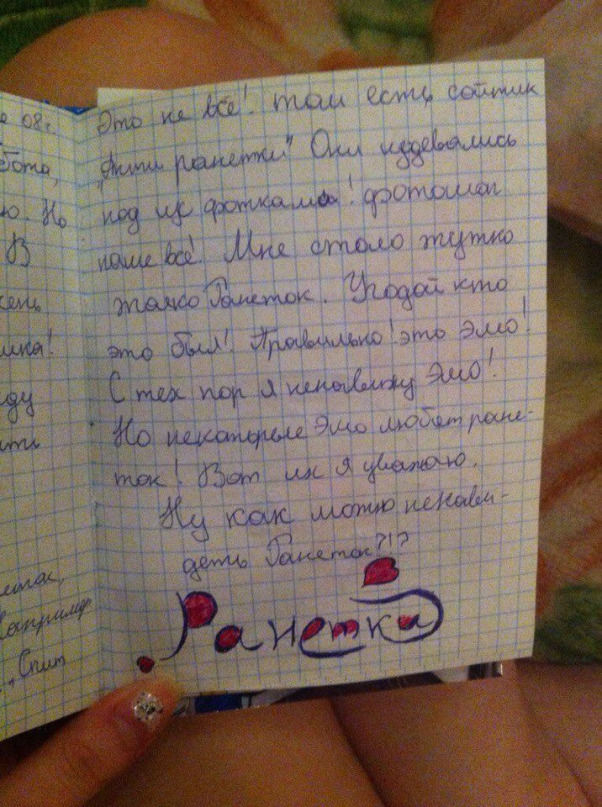 е 08г.
бота,
ю. Но
В
сень
шка!
еду
ить
еток,
Например
"Спит
Это не всё! там есть сайтик
„Анти ранетки" Они издевались
над их фотками! фотошоп
наше всё! Мне стало жутко
жалко Ранеток. Угодай кто
это был! Правильно! это Эмо!
С тех пор я ненавижу Эмо!
Но некаторые Эмо любят ране-
ток! Вот их я уважаю.
Ну как можно ненави-
деть Ранеток?!?
Ранетки